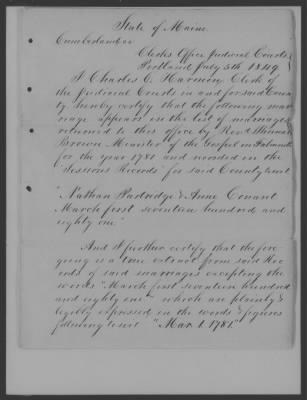 State of Maine.
Cumberland ss
Clerks Office Judicial Courts
Portland July 5th 1849.
I Charles C. Harmon Clerk of
the Judicial Courts in and for said Coun
ty, hereby certify that the following mar
riage appears in the list of marriages
returned to this office by Revd
Brown Minister of the Gospel in Falmouth
for the year 1781 and recorded in the
Sessions Records for said County to wit
"Nathan Partridge & Anne Conant
March first seventeen hundred and
eighty one."
And I further certify that the fore
going is a true extract from said Rec
ords of said marriages excepting the
words "March first seventeen hundred
and eighty one" which are plainly &
legibly expressed in the words & figures
following to wit "Mar. 1. 1781"